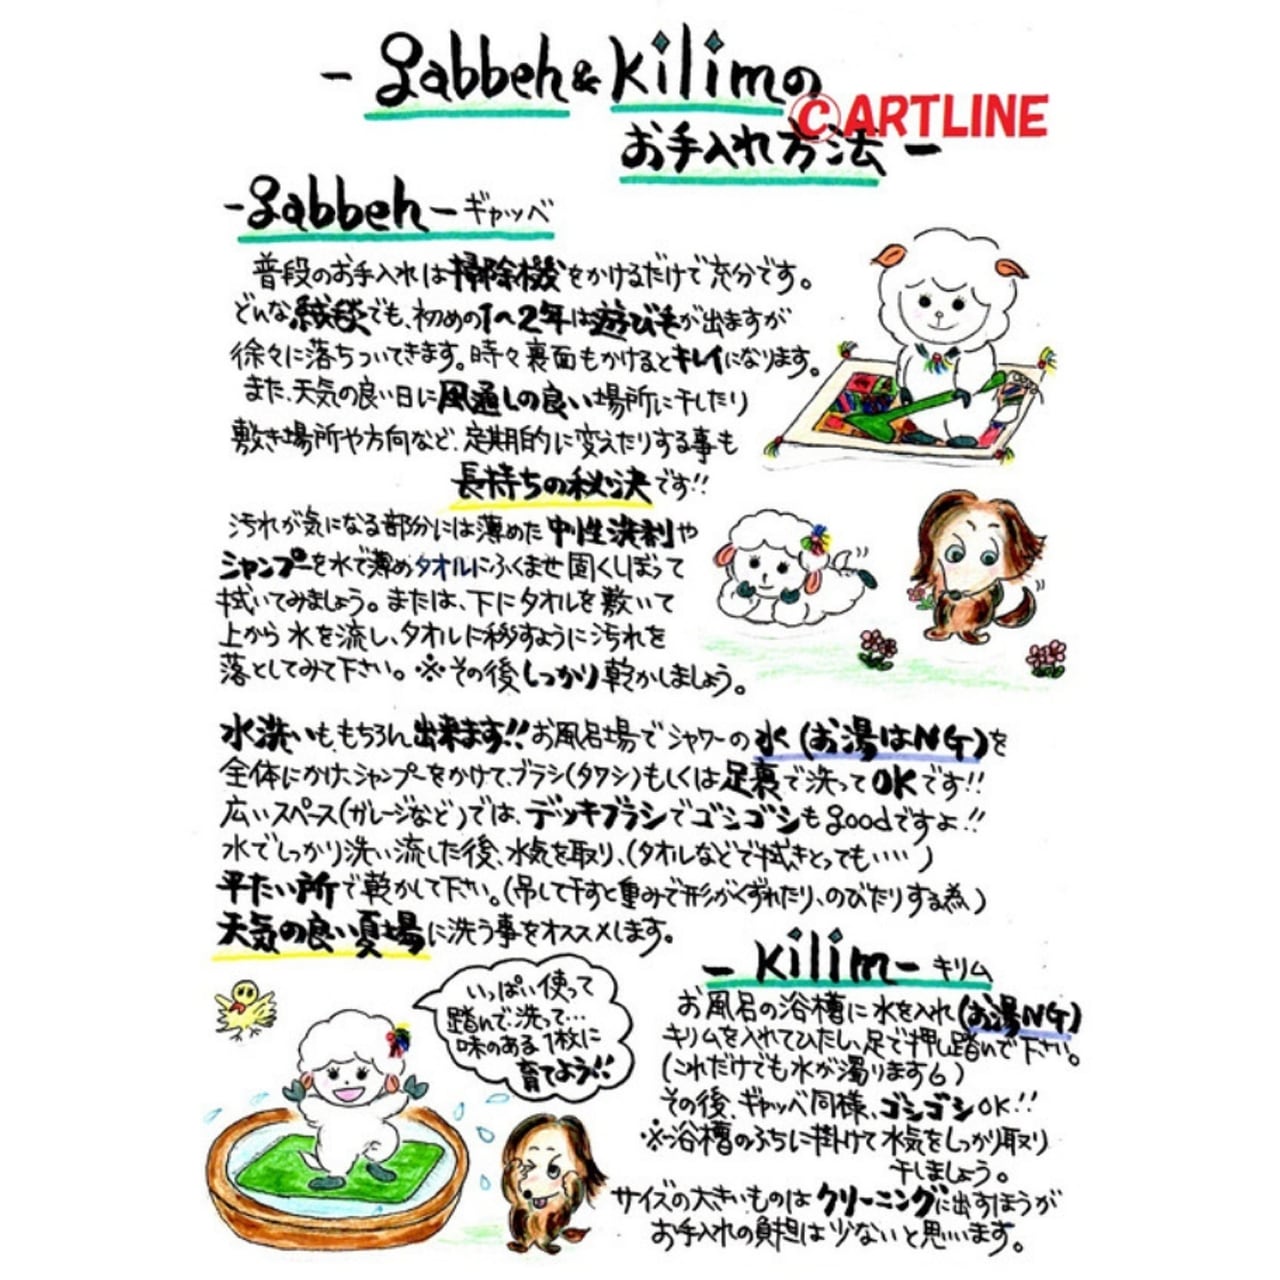 - gabbeh & kilimの
©ARTLINE
お手入れ方法 -
- gabbeh - ギャッベ
普段のお手入れは掃除機をかけるだけで充分です。
どんな絨毯でも、初めの1〜2年は遊び毛が出ますが
徐々に落ちついてきます。時々裏面もかけるとキレイになります。
また、天気の良い日に風通しの良い場所に干したり
敷き場所や方向など、定期的に変えたりする事も
長持ちの秘訣です!!
汚れが気になる部分には薄めた中性洗剤や
シャンプーを水で薄めタオルにふくませ固くしぼって
拭いてみましょう。または、下にタオルを敷いて
上から水を流し、タオルに移すように汚れを
落としてみて下さい。※その後しっかり乾かしましょう。
水洗いも、もちろん出来ます!!お風呂場でシャワーの水(お湯はNG)を
全体にかけ、シャンプーをかけて、ブラシ(タワシ)もしくは足裏で洗ってOKです!!
広いスペース(ガレージなど)では、デッキブラシでゴシゴシもgoodですよ!!
水でしっかり洗い流した後、水気を取り、(タオルなどで拭きとっても‥‥)
平たい所で乾かして下さい。(吊して干すと重みで形がくずれたり、のびたりする為)
天気の良い夏場に洗う事をオススメします。
- kilim - キリム
お風呂の浴槽に水を入れ(お湯NG)
キリムを入れてひたし、足で押し踏んで下さい。
(これだけでも水が濁ります6)
その後、ギャッベ同様、ゴシゴシOK!!
※浴槽のふちに掛けて水気をしっかり取り
干しましょう。
サイズの大きいものはクリーニングに出すほうが
お手入れの負担は少ないと思います。
いっぱい使って
踏んで、洗って…
味のある1枚に
育てよう!!